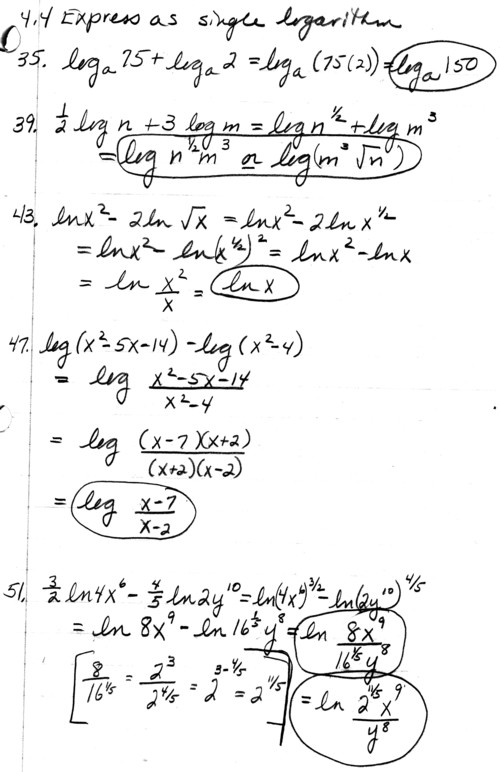 4.4 Express as single logarithm
35. logₐ75 + logₐ2 = logₐ(75(2)) = logₐ150
39. ½ log n + 3 log m = log n^½ + log m³
= log n^½ m³ or log(m³ √n)
43. lnx² - 2ln √x = lnx² - 2ln x^½
= lnx² - ln(x^½)² = lnx² - lnx
= ln x²/x = ln x
47. log(x²-5x-14) - log(x²-4)
= log (x²-5x-14)/(x²-4)
= log ((x-7)(x+2))/((x+2)(x-2))
= log (x-7)/(x-2)
51. 3/2 ln4x⁶ - 4/5 ln2y¹⁰ = ln(4x⁶)^3/2 - ln(2y¹⁰)^4/5
= ln 8x⁹ - ln 16^⅕ y⁸ = ln 8x⁹/(16^⅕ y⁸)
[8/16^⅕ = 2³/2^4/5 = 2^(3-4/5) = 2^11/5] = ln (2^11/5 x⁹)/y⁸